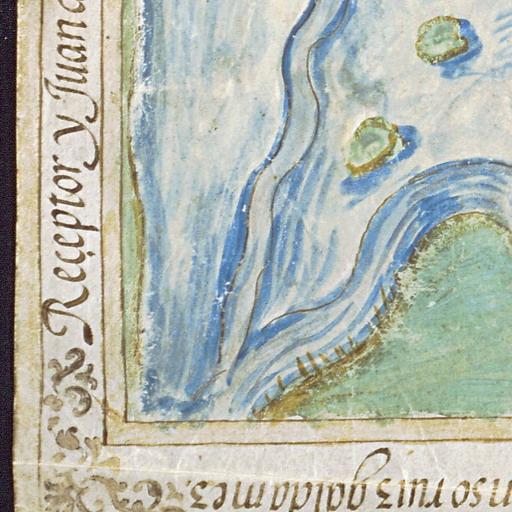 Reçeptor y Juan
nso ruiz galdames